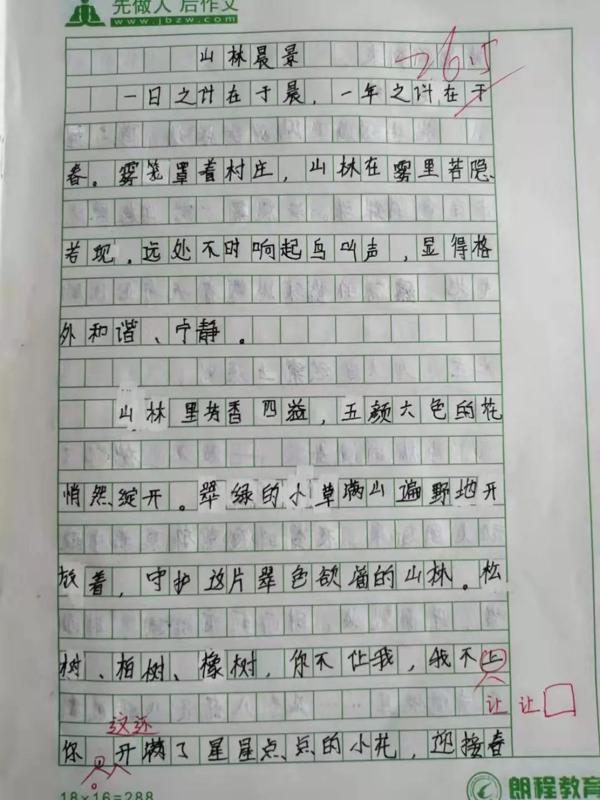 先做人 后作文
www.jbzw.com
山林晨景
26.5
一日之计在于晨，一年之计在于
春。雾笼罩着村庄，山林在雾里若隐
若现。远处不时响起鸟叫声，显得格
外和谐、宁静。
山林里芳香四溢，五颜六色的花
悄然绽开。翠绿的小草满山遍野地开
放着，守护这片翠色欲滴的山林。松
树、柏树、橡树，你不让我，我不上
让 让
这还
你。开满了星星点点的小花，迎接春
18×16=288
朗程教育